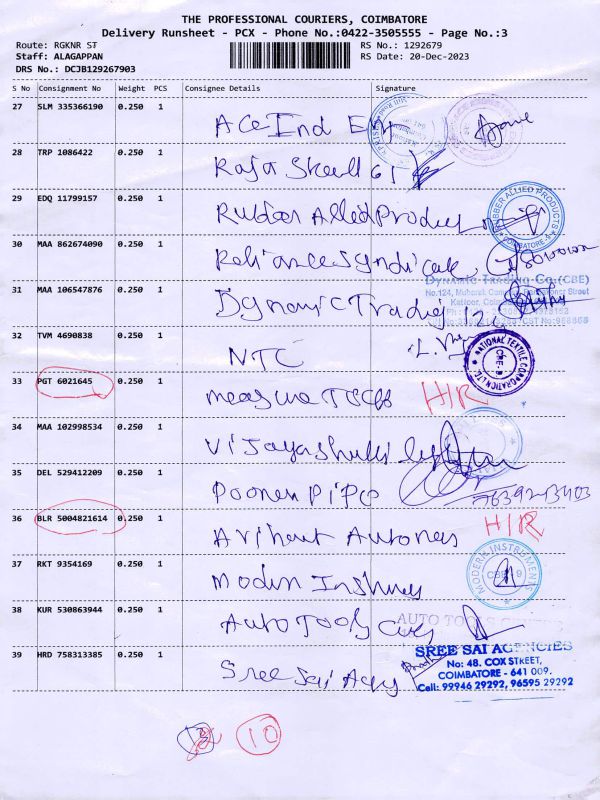 THE PROFESSIONAL COURIERS, COIMBATORE
Delivery Runsheet - PCX - Phone No.:0422-3505555 - Page No.:3
Route: RGKNR ST
RS No.: 1292679
Staff: ALAGAPPAN
RS Date: 20-Dec-2023
DRS No.: DCJB129267903
S No Consignment No Weight PCS Consignee Details Signature
27 SLM 335366190 0.250 1 Ace Ind
28 TRP 1086422 0.250 1 Raja Steell
29 EDQ 11799157 0.250 1 Rubber Allied Produc
RUBBER ALLIED PRODUCTS
COIMBATORE-9
30 MAA 862674090 0.250 1 Reliance Syndicate
31 MAA 106547876 0.250 1 Dynamic Trading
Dynamic Trading Co. (CBE)
32 TVM 4690838 0.250 1 NTC
NATIONAL TEXTILE CORPORATION LTD.
CBE-9
33 PGT 6021645 0.250 1 H/R
34 MAA 102998534 0.250 1 Vijayashulli
35 DEL 529412209 0.250 1
36 BLR 5004821614 0.250 1 Arihant H/R
37 RKT 9354169 0.250 1 Modern
MODERN INSTRUMENTS
CBE-9
38 KUR 530863944 0.250 1 Auto Tools
AUTO TOOLS
39 HRD 758313385 0.250 1 Sree Sai Agcy
SREE SAI AGENCIES
No: 48. COX STREET,
COIMBATORE - 641 009.
Cell: 99946 29292, 96595 29292
10